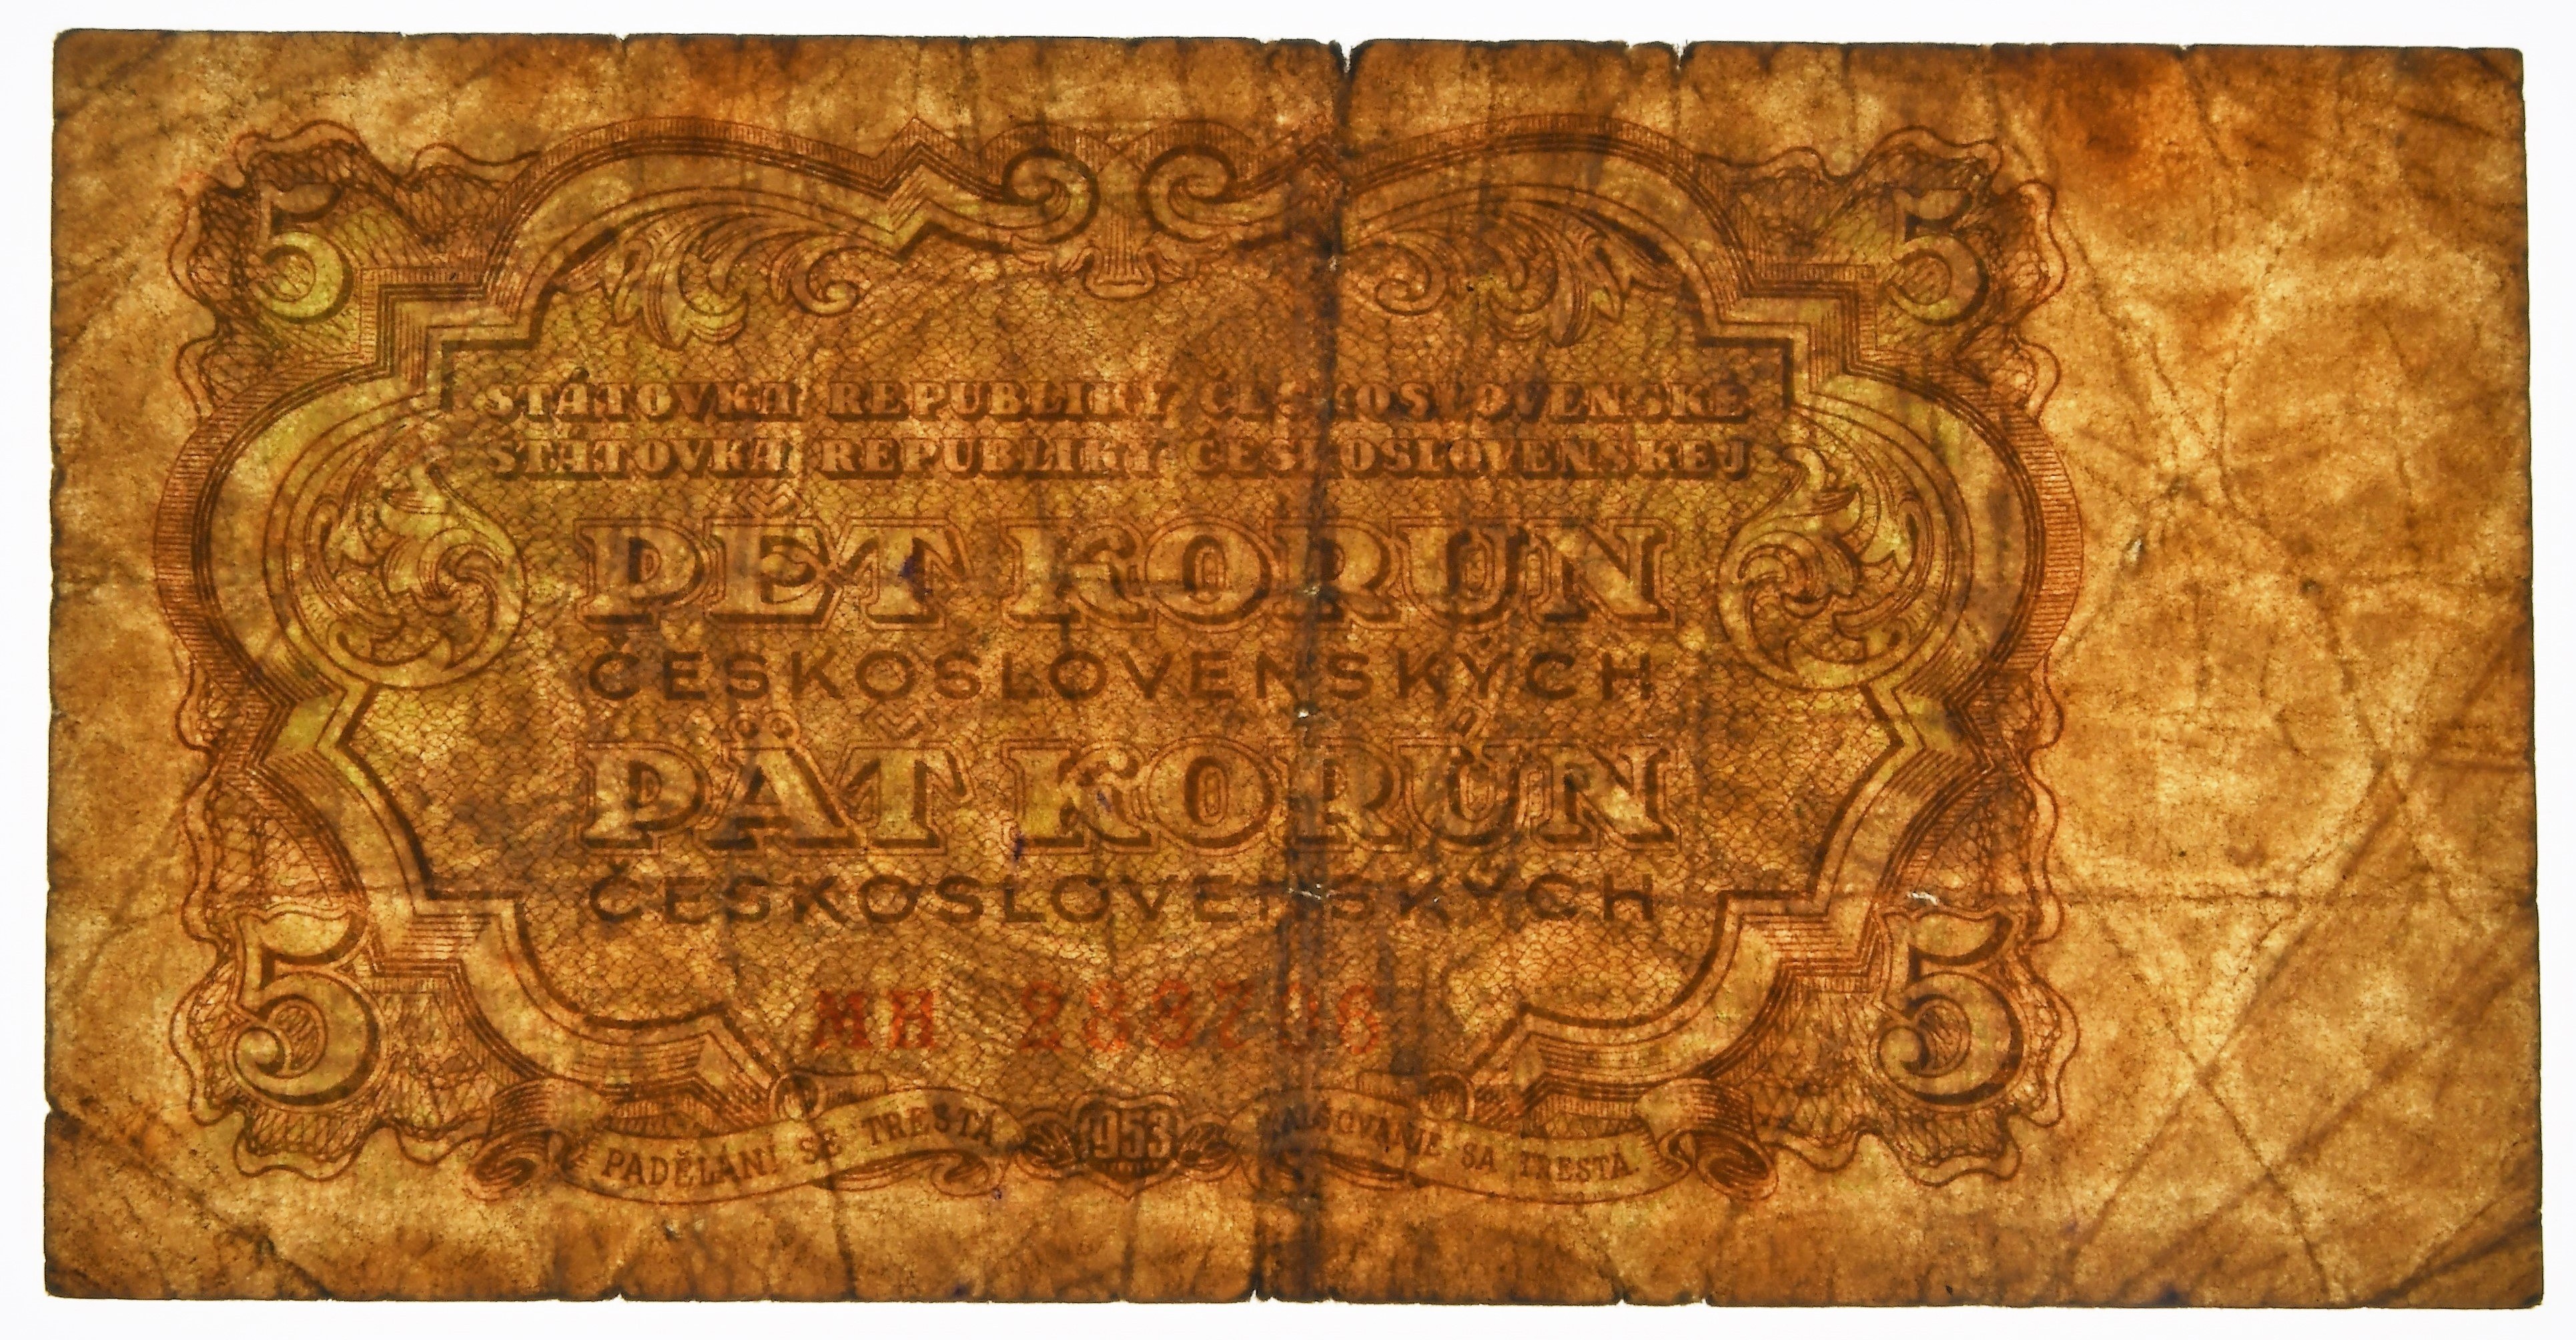 5 5
STÁTOVKA REPUBLIKY ČESKOSLOVENSKÉ
ŠTÁTOVKA REPUBLIKY ČESKOSLOVENSKEJ
PĚT KORUN
ČESKOSLOVENSKÝCH
PÄŤ KORÚN
ČESKOSLOVENSKÝCH
5 5
MH
PADĚLÁNÍ SE TRESTÁ 1953 FALŠOVANIE SA TRESTÁ